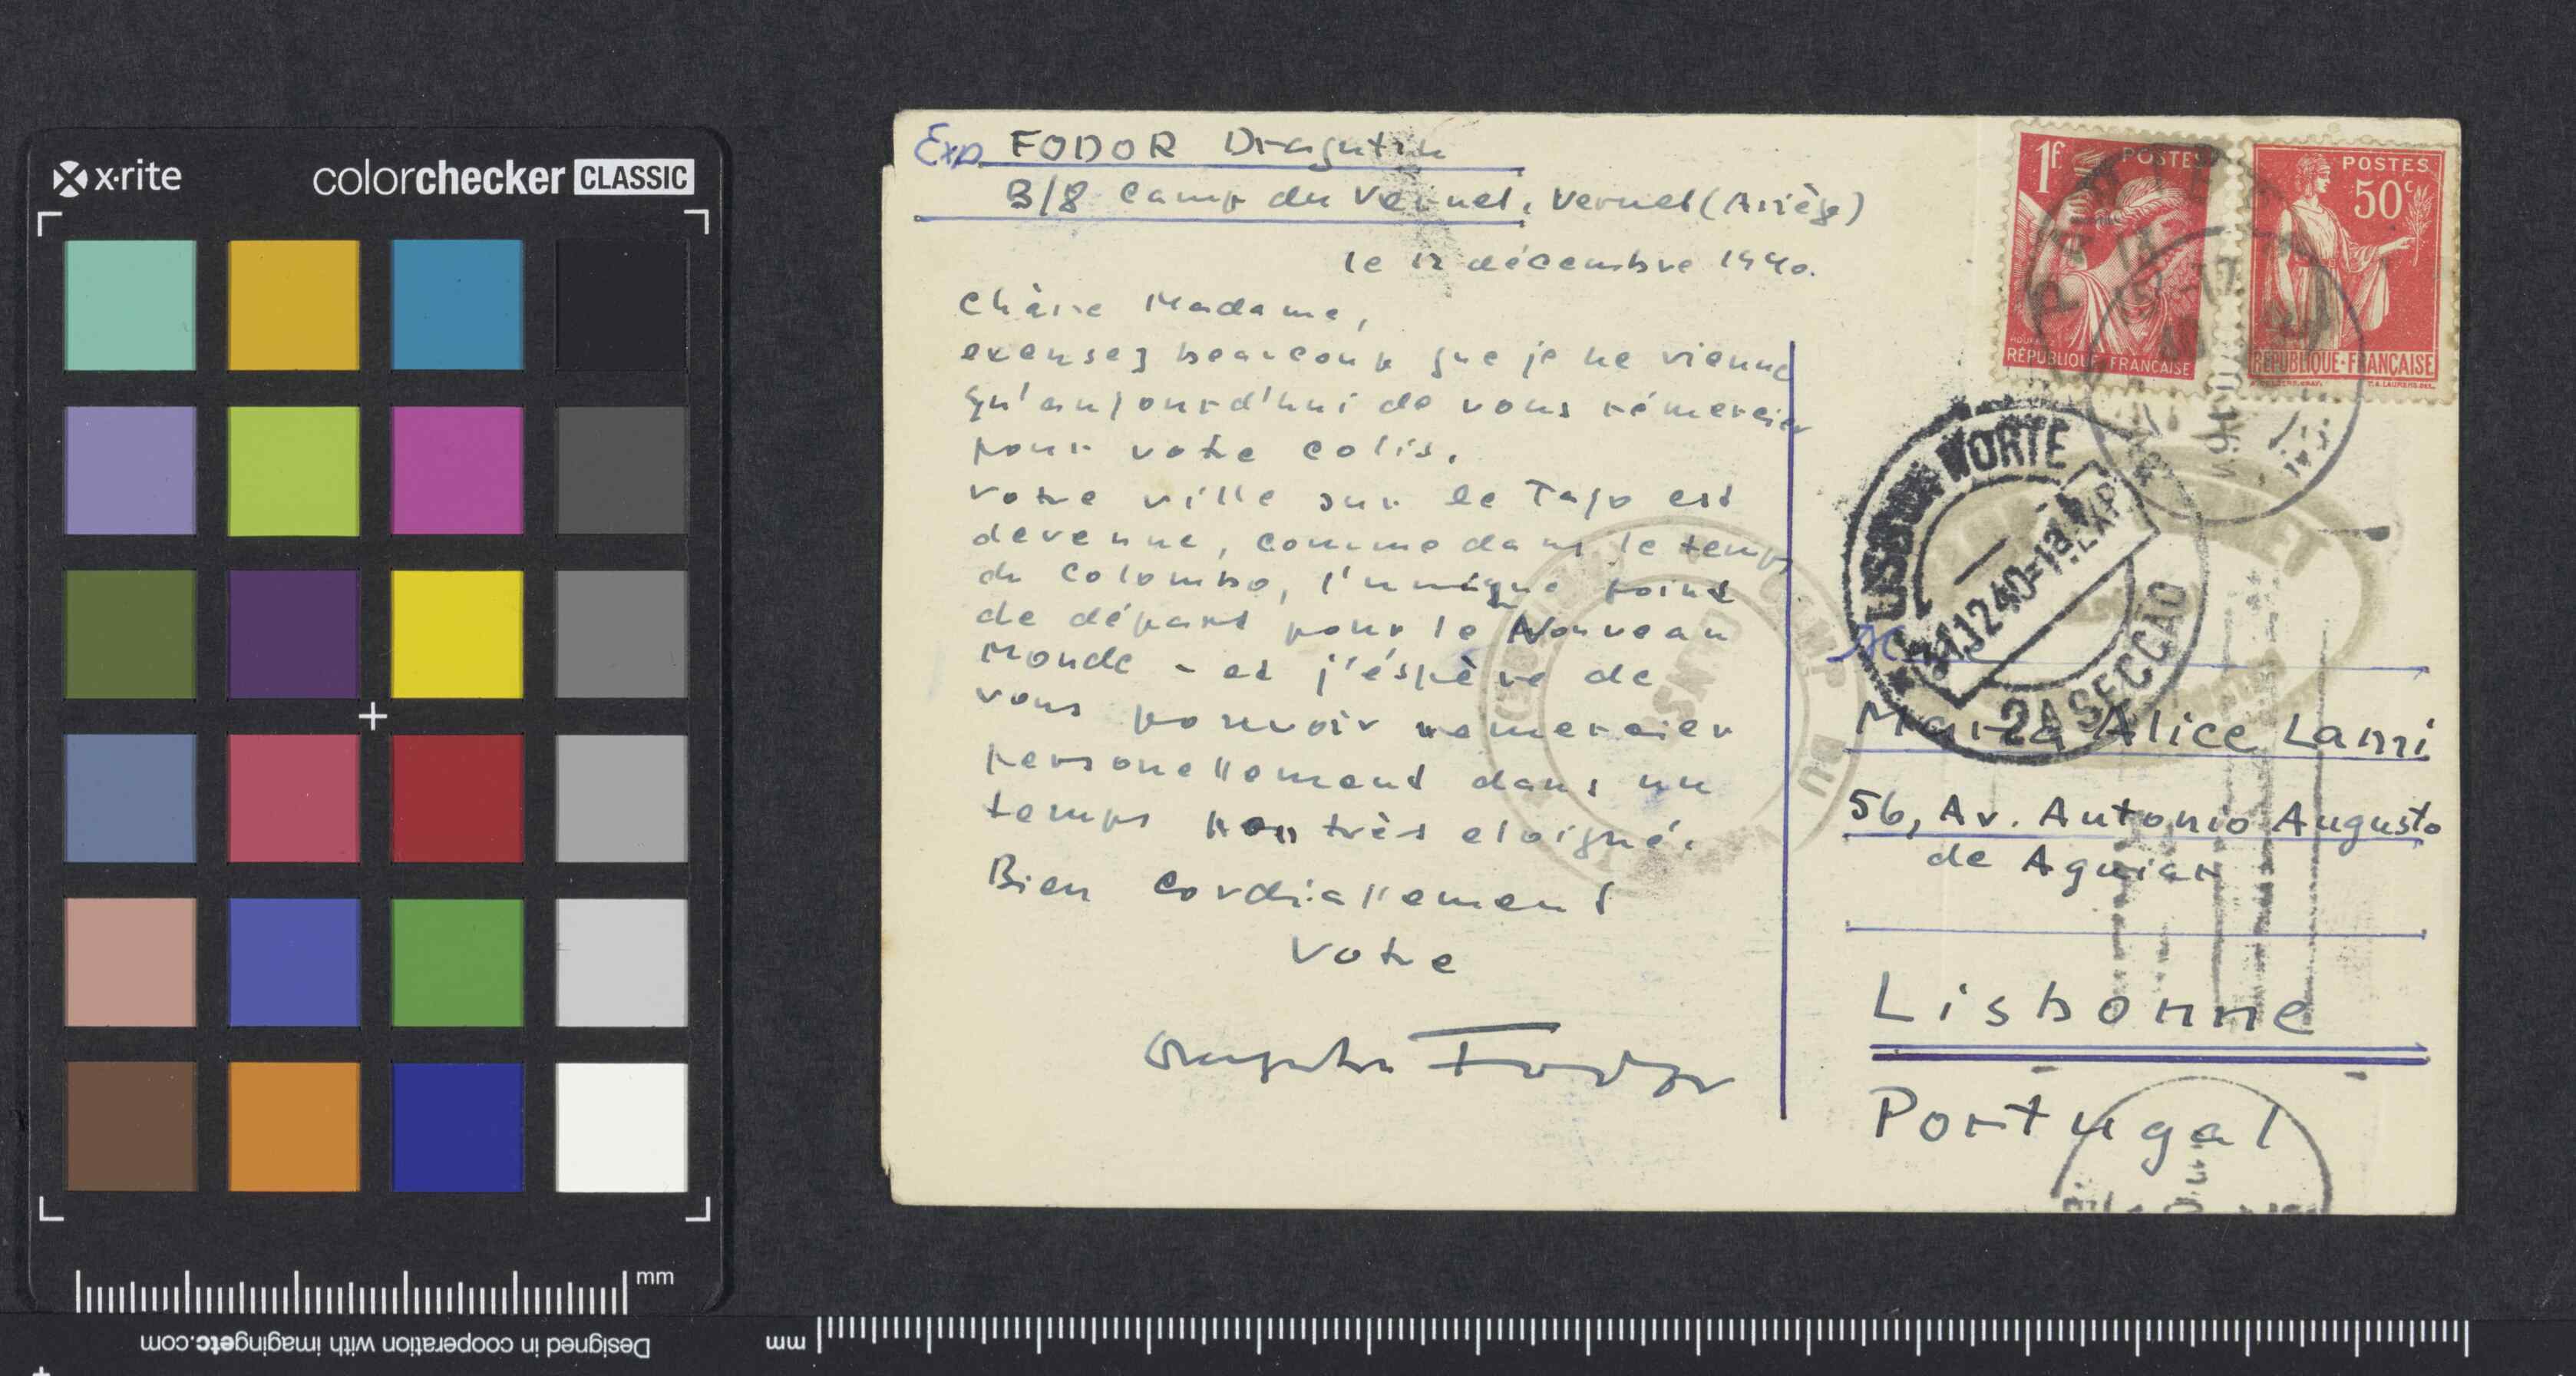 x·rite
colorchecker CLASSIC
mm
Designed in cooperation with imagingetc.com
mm
Exp. FODOR Dragutin
B/8 Camp du Vernet, Vernet (Ariège)
le 12 décembre 1940.
Chère Madame,
excusez beaucoup que je ne vienne
qu'aujourd'hui de vous rémercier
pour votre colis.
Votre ville sur le Tajo est
devenue, comme dans le temps
de Colombo, l'unique point
de départ pour le Nouveau
Monde - et j'éspère de
vous pouvoir remercier
personellement dans un
temps non très eloigné.
Bien cordiallement
Votre
Dragutin Fodor
1f. POSTES
RÉPUBLIQUE FRANÇAISE
POSTES
50c
RÉPUBLIQUE·FRANÇAISE
LISBOA NORTE
2A SECCÃO
CAMP DU
Maria Alice Lami
56, Av. Antonio Augusto
de Aguiar
Lisbonne
Portugal